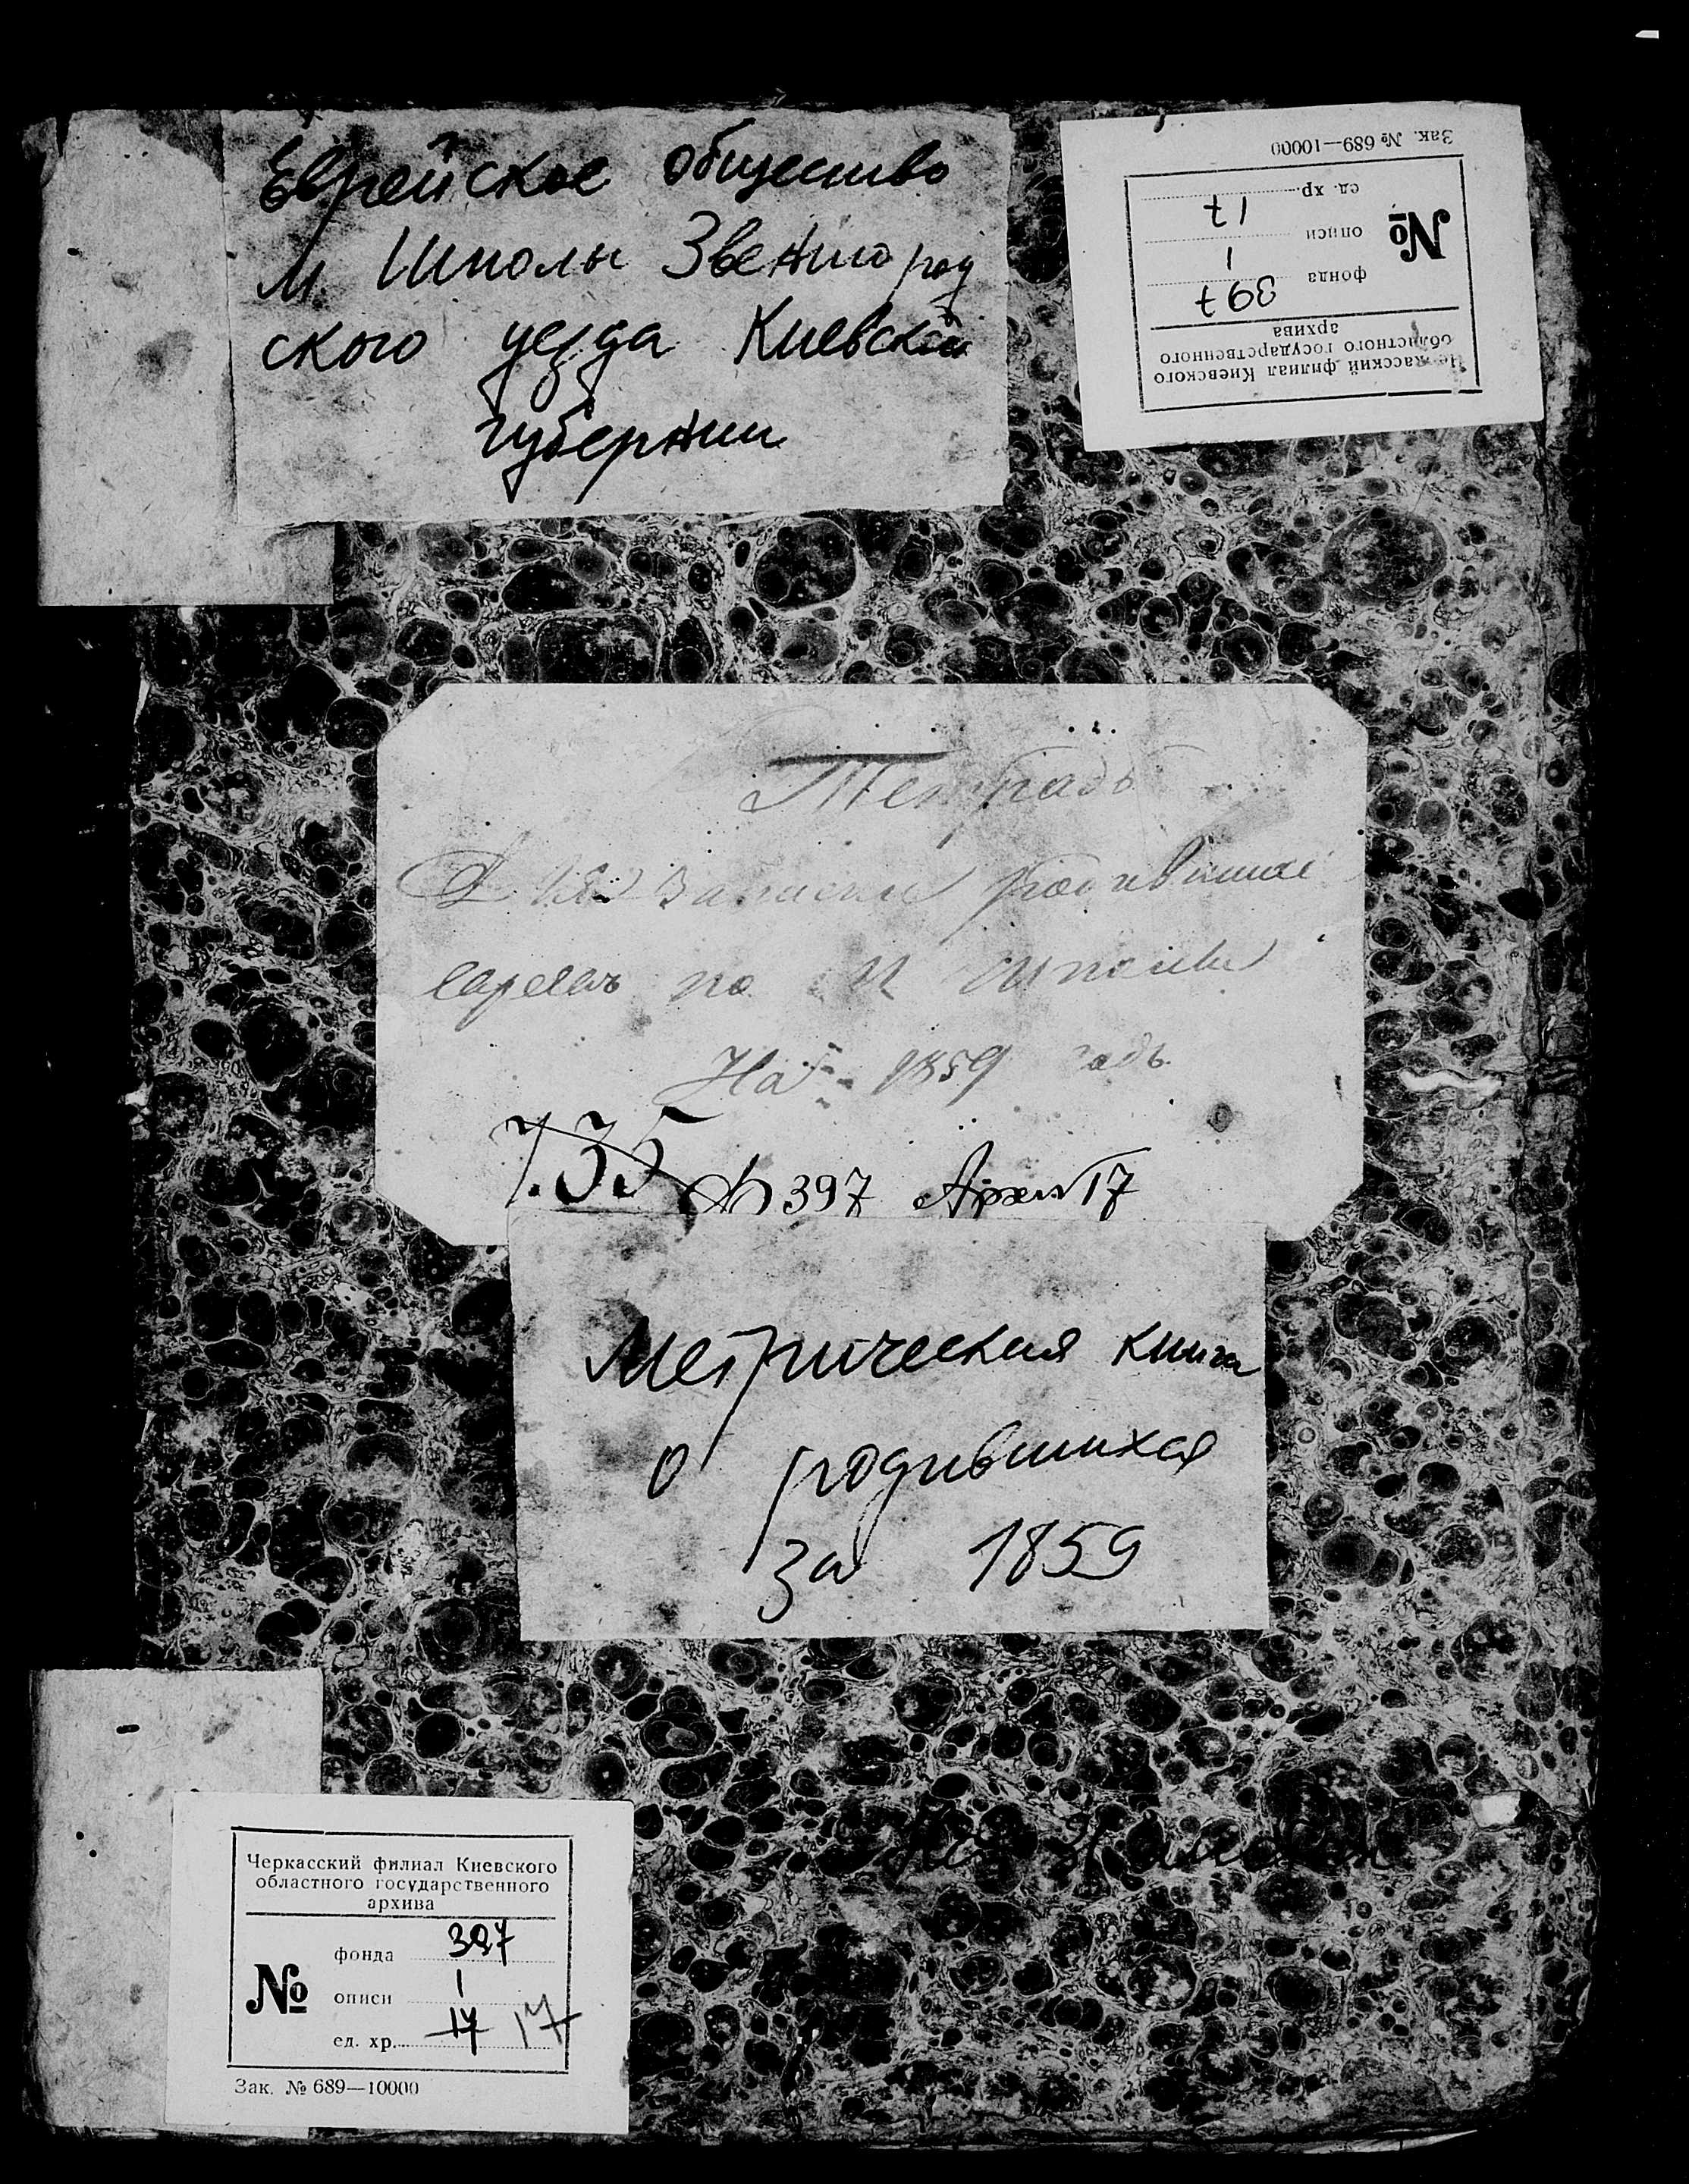 Еврейское общество
м. Шполы Звенигород
ского уезда Киевской
губернии
Зак. № 689—10000
Черкасский филиал Киевского
областного государственного
архива
№
фонда 397
описи 1
ед. хр. 17
Тетрадь
Для записки родившихся
евреевъ по М Шполе
На 1859 годъ
735 Ф 397 Архив 17
Метрическая книга
о родившихся
за 1859
Черкасский филиал Киевского
областного государственного
архива
№
фонда 397
описи 1
ед. хр. 17 17
Зак. № 689—10000